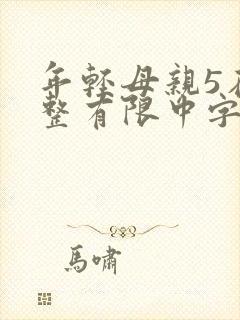 年轻母親5在
整有限中字
馬嘯